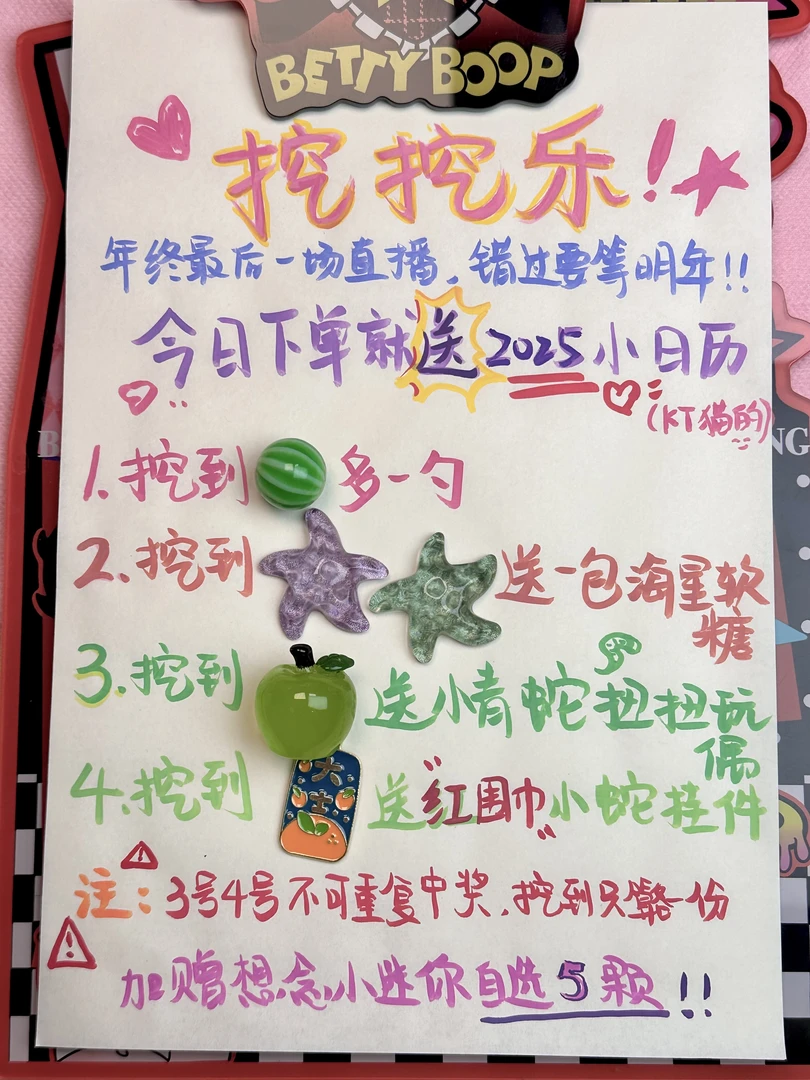 BETTY BOOP
挖挖乐!
年终最后一场直播，错过要等明年!!
今日下单就送2025小日历
(KT猫的)
1.挖到 多一勺
2.挖到 送一包海星软糖
3.挖到 送情蛇扭扭玩偶
4.挖到 送"红围巾"小蛇挂件
大吉
注：3号4号不可重复中奖，挖到只赠一份
加赠想念小迷你自选5颗!!